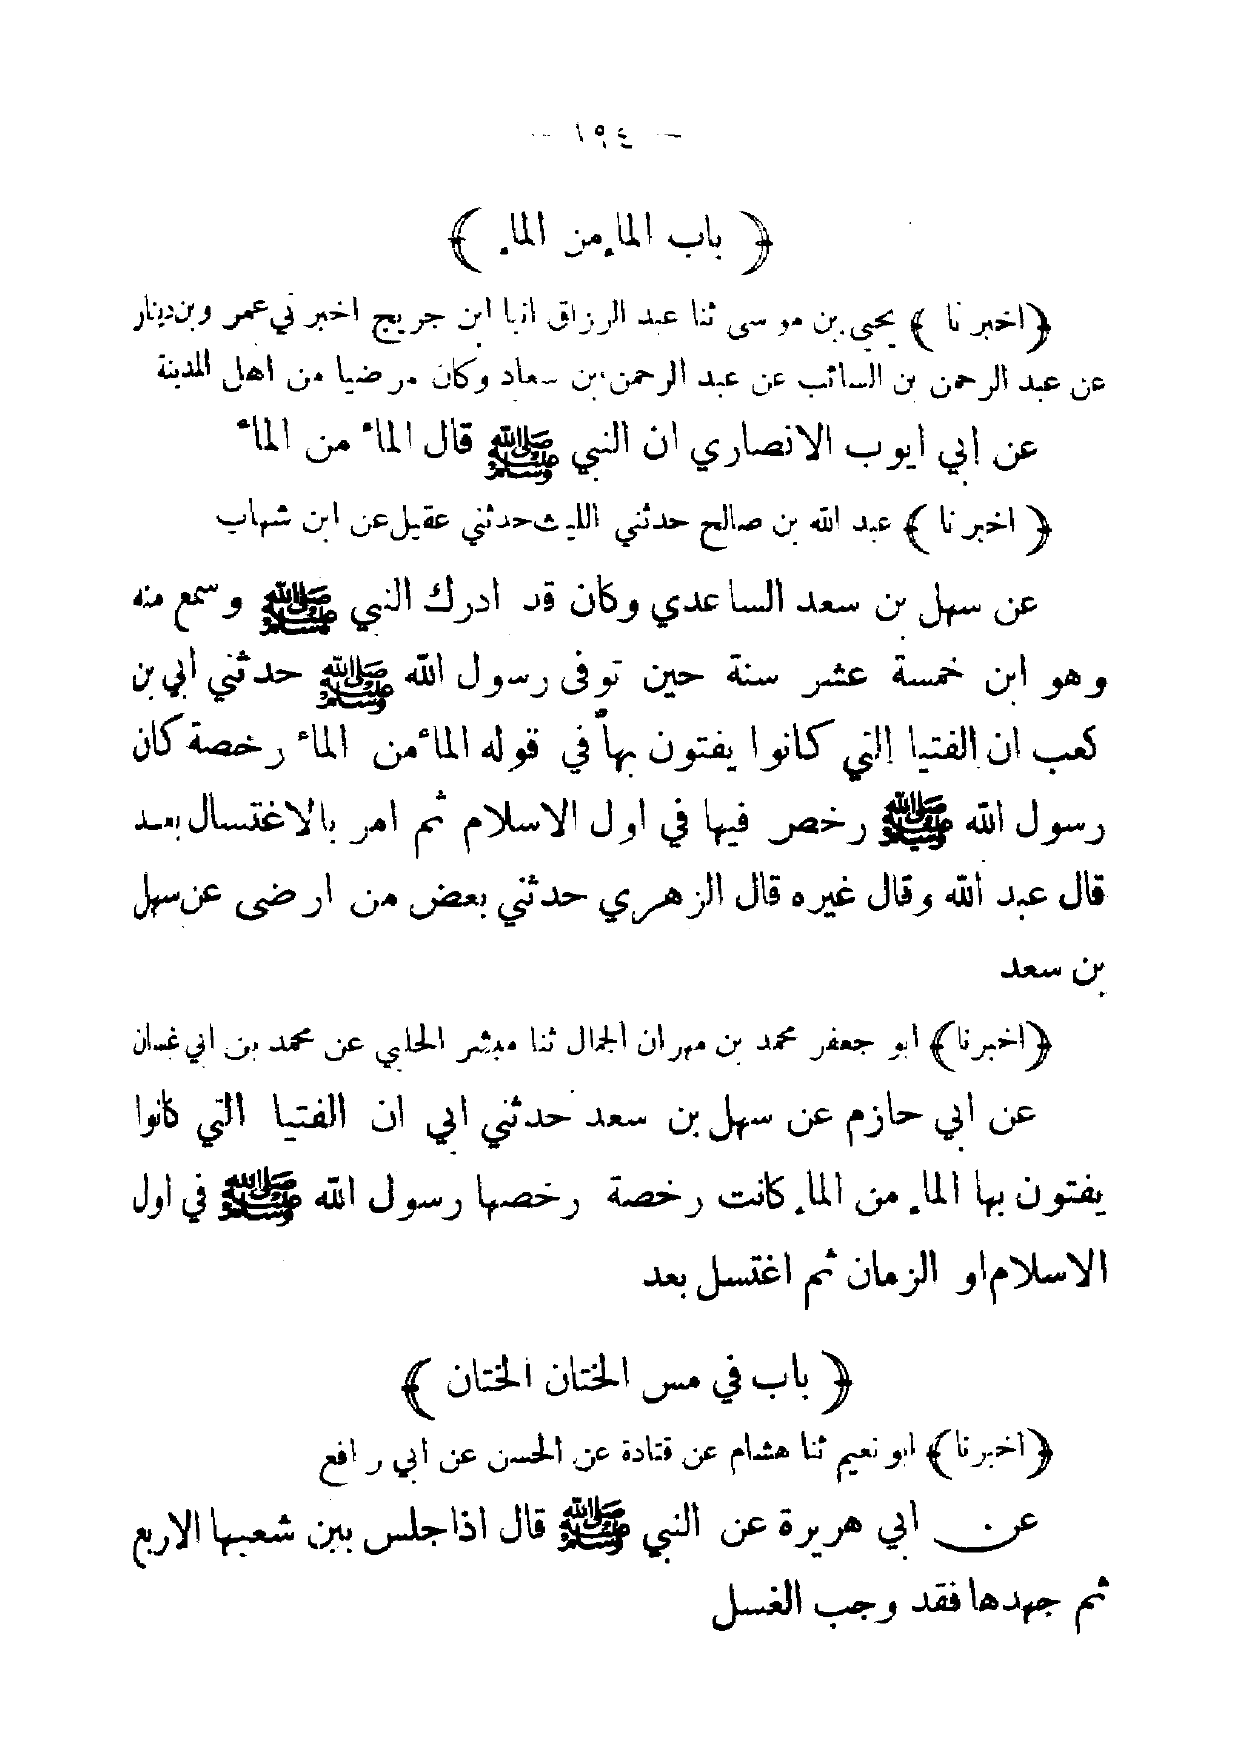 - ١٩٤ -
﴿ باب الماء من الماء ﴾
﴿اخبرنا ﴾ يحيى بن موسى ثنا عبد الرزاق انبا ابن جريج اخبرني عمرو بن دينار
عن عبد الرحمن بن السائب عن عبد الرحمن بن سعاد وكان مرضيا من اهل المدينة
عن ابي ايوب الانصاري ان النبي ﷺ قال الماء من الماء
﴿ اخبرنا ﴾ عبد الله بن صالح حدثني الليث حدثني عقيل عن ابن شهاب
عن سهل بن سعد الساعدي وكان قد ادرك النبي ﷺ وسمع منه
وهو ابن خمسة عشر سنة حين توفى رسول الله ﷺ حدثني ابي بن
كعب ان الفتيا التي كانوا يفتون بها في قوله الماء من الماء رخصة كان
رسول الله ﷺ رخص فيها في اول الاسلام ثم امر بالاغتسال بعد
قال عبد الله وقال غيره قال الزهري حدثني بعض من ارضى عن سهل
بن سعد
﴿اخبرنا﴾ ابو جعفر محمد بن مهران الجمال ثنا مبشر الحلبي عن محمد بن ابي غسان
عن ابي حازم عن سهل بن سعد حدثني ابي ان الفتيا التي كانوا
يفتون بها الماء من الماء كانت رخصة رخصها رسول الله ﷺ في اول
الاسلام او الزمان ثم اغتسل بعد
﴿ باب في مس الختان الختان ﴾
﴿اخبرنا﴾ ابو نعيم ثنا هشام عن قتادة عن الحسن عن ابي رافع
عن ابي هريرة عن النبي ﷺ قال اذا جلس بين شعبها الاربع
ثم جهدها فقد وجب الغسل